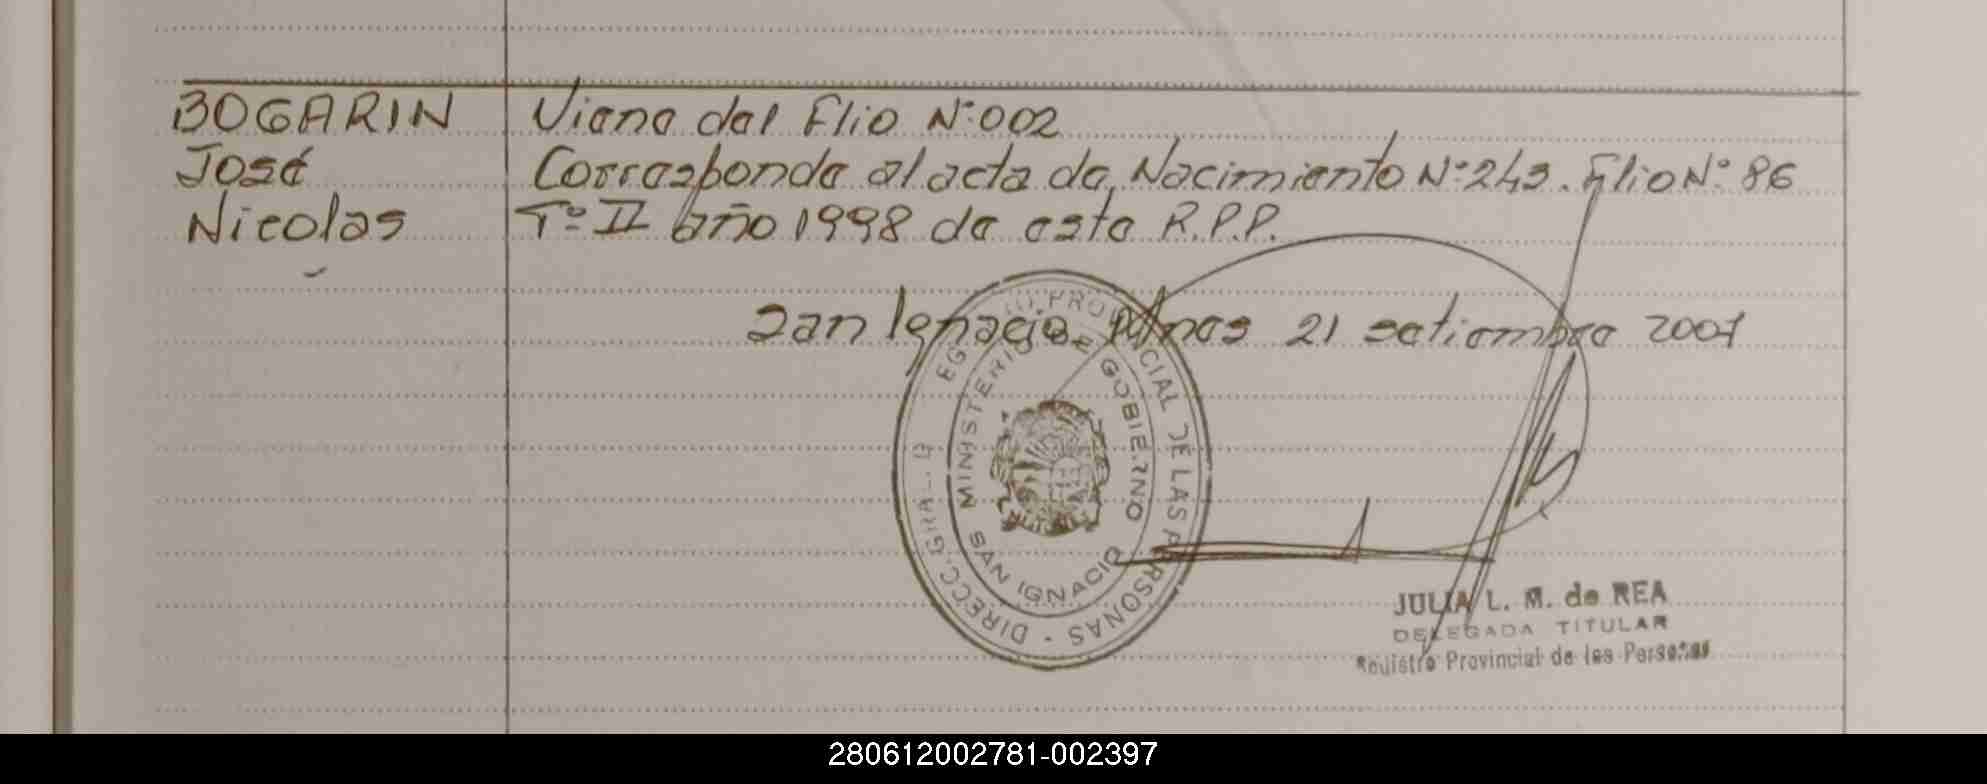 BOGARIN Viene del Flio N°:002
José Corresponde al acta de Nacimiento N°:243. Flio N°: 86
Nicolas T° II año 1998 de este R.P.P.
San Ignacio, Mnes 21 setiembre 2001
DIRECC. GRAL. D EG PROVINCIAL DE LAS PERSONAS
MINISTERIO DE GOBIERNO
SAN IGNACIO
JULIA L. M. de REA
DELEGADA TITULAR
Registro Provincial de las Personas
280612002781-002397